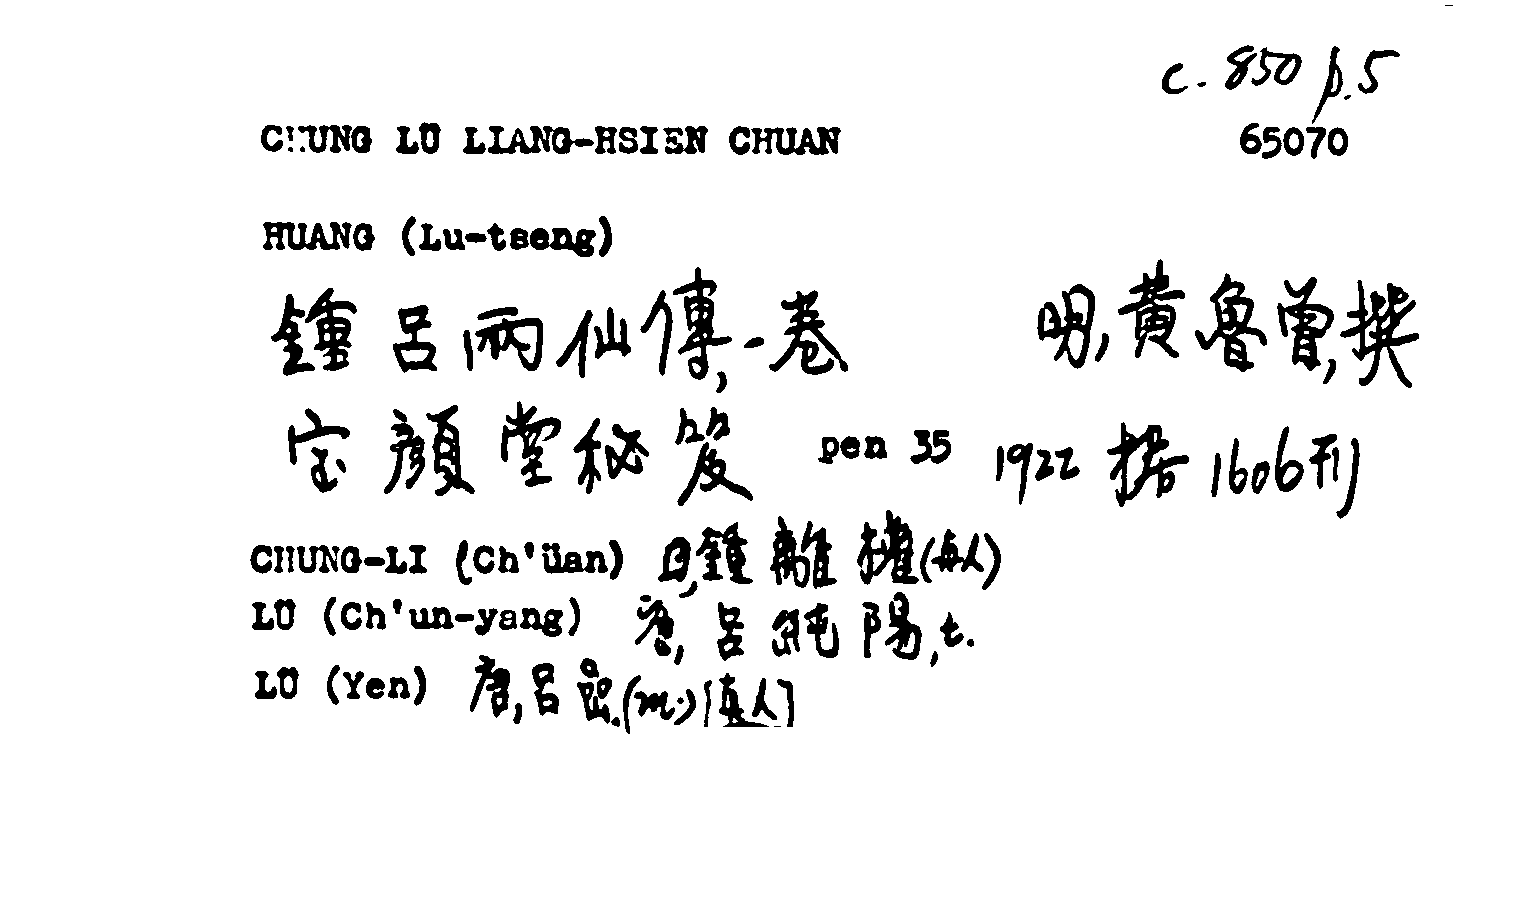 c. 850 p.5
CHUNG LÜ LIANG-HSIEN CHUAN 65070
HUANG (Lu-tseng)
鍾呂两仙傳,一卷 明,黃魯曾,撰
宝顏堂秘笈 pen 35 1922 据 1606刊
CHUNG-LI (Ch'üan) 鍾離權(真人)
LÜ (Ch'un-yang) 唐,呂純陽,t.
LÜ (Yen) 唐,呂嵒.(m.)[真人]